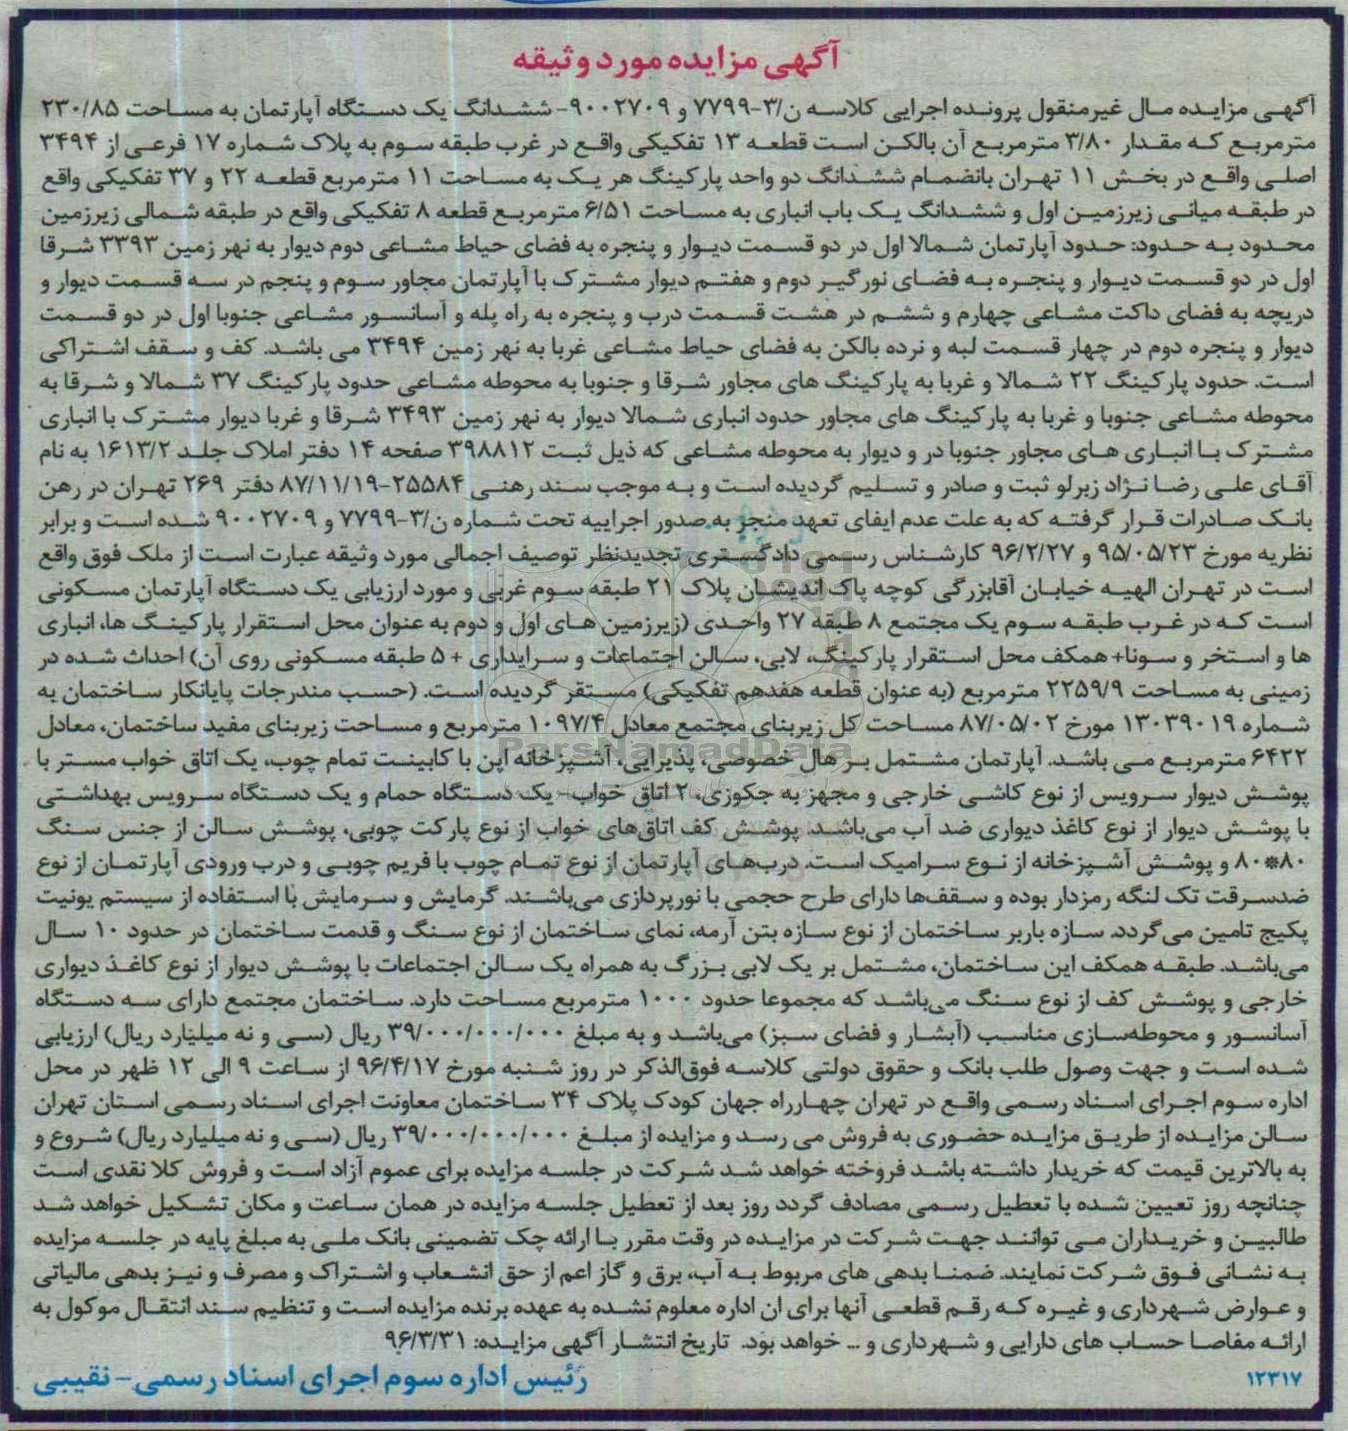 آگهی مزایده مورد وثیقه
آگهی مزایده مال غیرمنقول پرونده اجرایی کلاسه ن/۳-۷۷۹۹ و ۹۰۰۲۷۰۹- ششدانگ یک دستگاه آپارتمان به مساحت ۲۳۰/۸۵
مترمربع که مقدار ۳/۸۰ مترمربع آن بالکن است قطعه ۱۳ تفکیکی واقع در غرب طبقه سوم به پلاک شماره ۱۷ فرعی از ۳۴۹۴
اصلی واقع در بخش ۱۱ تهران بانضمام ششدانگ دو واحد پارکینگ هر یک به مساحت ۱۱ مترمربع قطعه ۲۲ و ۳۷ تفکیکی واقع
در طبقه میانی زیرزمین اول و ششدانگ یک باب انباری به مساحت ۶/۵۱ مترمربع قطعه ۸ تفکیکی واقع در طبقه شمالی زیرزمین
محدود به حدود: حدود آپارتمان شمالا اول در دو قسمت دیوار و پنجره به فضای حیاط مشاعی دوم دیوار به نهر زمین ۳۳۹۳ شرقا
اول در دو قسمت دیوار و پنجره به فضای نورگیر دوم و هفتم دیوار مشترک با آپارتمان مجاور سوم و پنجم در سه قسمت دیوار و
دریچه به فضای داکت مشاعی چهارم و ششم در هشت قسمت درب و پنجره به راه پله و آسانسور مشاعی جنوبا اول در دو قسمت
دیوار و پنجره دوم در چهار قسمت لبه و نرده بالکن به فضای حیاط مشاعی غربا به نهر زمین ۳۴۹۴ می باشد. کف و سقف اشتراکی
است. حدود پارکینگ ۲۲ شمالا و غربا به پارکینگ های مجاور شرقا و جنوبا به محوطه مشاعی حدود پارکینگ ۳۷ شمالا و شرقا به
محوطه مشاعی جنوبا و غربا به پارکینگ های مجاور حدود انباری شمالا دیوار به نهر زمین ۳۴۹۳ شرقا و غربا دیوار مشترک با انباری
مشترک با انباری های مجاور جنوبا در و دیوار به محوطه مشاعی که ذیل ثبت ۳۹۸۸۱۲ صفحه ۱۴ دفتر املاک جلد ۱۶۱۳/۲ به نام
آقای علی رضا نژاد زبرلو ثبت و صادر و تسلیم گردیده است و به موجب سند رهنی ۲۵۵۸۴-۸۷/۱۱/۱۹ دفتر ۲۶۹ تهران در رهن
بانک صادرات قرار گرفته که به علت عدم ایفای تعهد منجر به صدور اجراییه تحت شماره ن/۳-۷۷۹۹ و ۹۰۰۲۷۰۹ شده است و برابر
نظریه مورخ ۹۵/۰۵/۲۳ و ۹۶/۲/۲۷ کارشناس رسمی دادگستری تجدیدنظر توصیف اجمالی مورد وثیقه عبارت است از ملک فوق واقع
است در تهران الهیه خیابان آقابزرگی کوچه پاک اندیشان پلاک ۲۱ طبقه سوم غربی و مورد ارزیابی یک دستگاه آپارتمان مسکونی
است که در غرب طبقه سوم یک مجتمع ۸ طبقه ۲۷ واحدی (زیرزمین های اول و دوم به عنوان محل استقرار پارکینگ ها، انباری
ها و استخر و سونا+ همکف محل استقرار پارکینگ، لابی، سالن اجتماعات و سرایداری + ۵ طبقه مسکونی روی آن) احداث شده در
زمینی به مساحت ۲۲۵۹/۹ مترمربع (به عنوان قطعه هفدهم تفکیکی) مستقر گردیده است. (حسب مندرجات پایانکار ساختمان به
شماره ۱۳۰۳۹۰۱۹ مورخ ۸۷/۰۵/۰۲ مساحت کل زیربنای مجتمع معادل ۱۰۹۷/۴ مترمربع و مساحت زیربنای مفید ساختمان، معادل
۶۴۲۲ مترمربع می باشد. آپارتمان مشتمل بر هال خصوصی، پذیرایی، آشپزخانه اپن با کابینت تمام چوب، یک اتاق خواب مستر با
پوشش دیوار سرویس از نوع کاشی خارجی و مجهز به جکوزی، ۲ اتاق خواب- یک دستگاه حمام و یک دستگاه سرویس بهداشتی
با پوشش دیوار از نوع کاغذ دیواری ضد آب می‌باشد. پوشش کف اتاق‌های خواب از نوع پارکت چوبی، پوشش سالن از جنس سنگ
۸۰*۸۰ و پوشش آشپزخانه از نوع سرامیک است. درب‌های آپارتمان از نوع تمام چوب با فریم چوبی و درب ورودی آپارتمان از نوع
ضدسرقت تک لنگه رمزدار بوده و سقف‌ها دارای طرح حجمی با نورپردازی می‌باشند. گرمایش و سرمایش با استفاده از سیستم یونیت
پکیج تامین می‌گردد. سازه باربر ساختمان از نوع سازه بتن آرمه، نمای ساختمان از نوع سنگ و قدمت ساختمان در حدود ۱۰ سال
می‌باشد. طبقه همکف این ساختمان، مشتمل بر یک لابی بزرگ به همراه یک سالن اجتماعات با پوشش دیوار از نوع کاغذ دیواری
خارجی و پوشش کف از نوع سنگ می‌باشد که مجموعا حدود ۱۰۰۰ مترمربع مساحت دارد. ساختمان مجتمع دارای سه دستگاه
آسانسور و محوطه‌سازی مناسب (آبشار و فضای سبز) می‌باشد و به مبلغ ۳۹/۰۰۰/۰۰۰/۰۰۰ ریال (سی و نه میلیارد ریال) ارزیابی
شده است و جهت وصول طلب بانک و حقوق دولتی کلاسه فوق‌الذکر در روز شنبه مورخ ۹۶/۴/۱۷ از ساعت ۹ الی ۱۲ ظهر در محل
اداره سوم اجرای اسناد رسمی واقع در تهران چهارراه جهان کودک پلاک ۳۴ ساختمان معاونت اجرای اسناد رسمی استان تهران
سالن مزایده از طریق مزایده حضوری به فروش می رسد و مزایده از مبلغ ۳۹/۰۰۰/۰۰۰/۰۰۰ ریال (سی و نه میلیارد ریال) شروع و
به بالاترین قیمت که خریدار داشته باشد فروخته خواهد شد شرکت در جلسه مزایده برای عموم آزاد است و فروش کلا نقدی است
چنانچه روز تعیین شده با تعطیل رسمی مصادف گردد روز بعد از تعطیل جلسه مزایده در همان ساعت و مکان تشکیل خواهد شد
طالبین و خریداران می توانند جهت شرکت در مزایده در وقت مقرر با ارائه چک تضمینی بانک ملی به مبلغ پایه در جلسه مزایده
به نشانی فوق شرکت نمایند. ضمنا بدهی های مربوط به آب، برق و گاز اعم از حق انشعاب و اشتراک و مصرف و نیز بدهی مالیاتی
و عوارض شهرداری و غیره که رقم قطعی آنها برای ان اداره معلوم نشده به عهده برنده مزایده است و تنظیم سند انتقال موکول به
ارائه مفاصا حساب های دارایی و شهرداری و ... خواهد بود. تاریخ انتشار آگهی مزایده: ۹۶/۳/۳۱
۱۲۳۱۷ رئیس اداره سوم اجرای اسناد رسمی- نقیبی
ParsNamadData